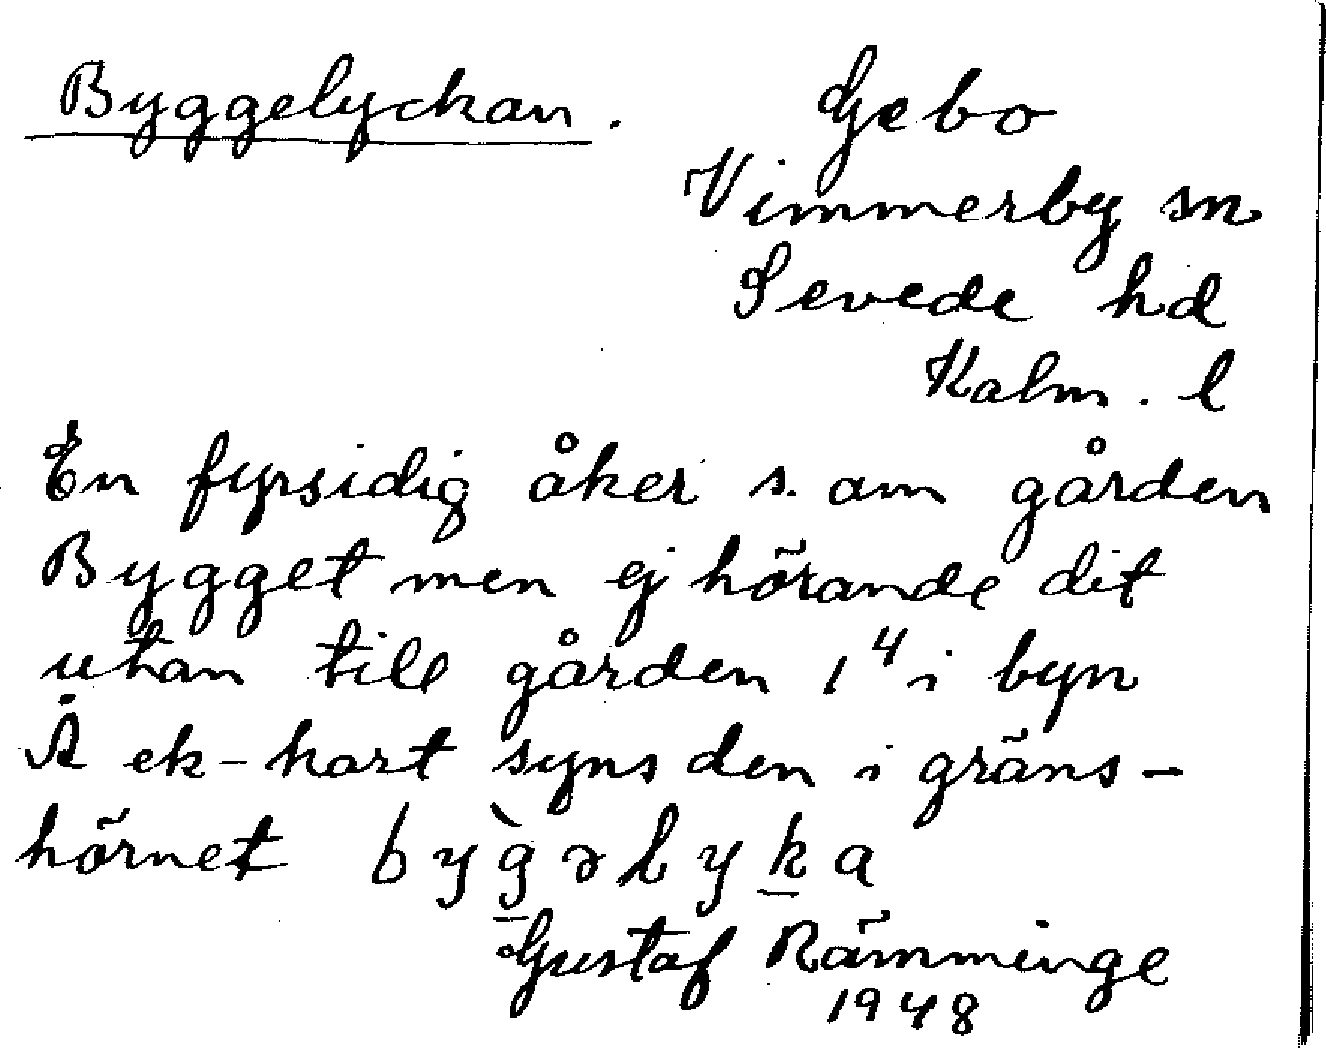 Byggelyckan.
Gebo
Vimmerby sn
Sevede hd
Kalm. l
En fyrsidig åker s. om gården
Bygget men ej hörande dit
utan till gården 1⁴ i byn
Å ek-kart syns den i gräns-
hörnet bỳg̲əlyk̲a
Gustaf Rämminge
1948